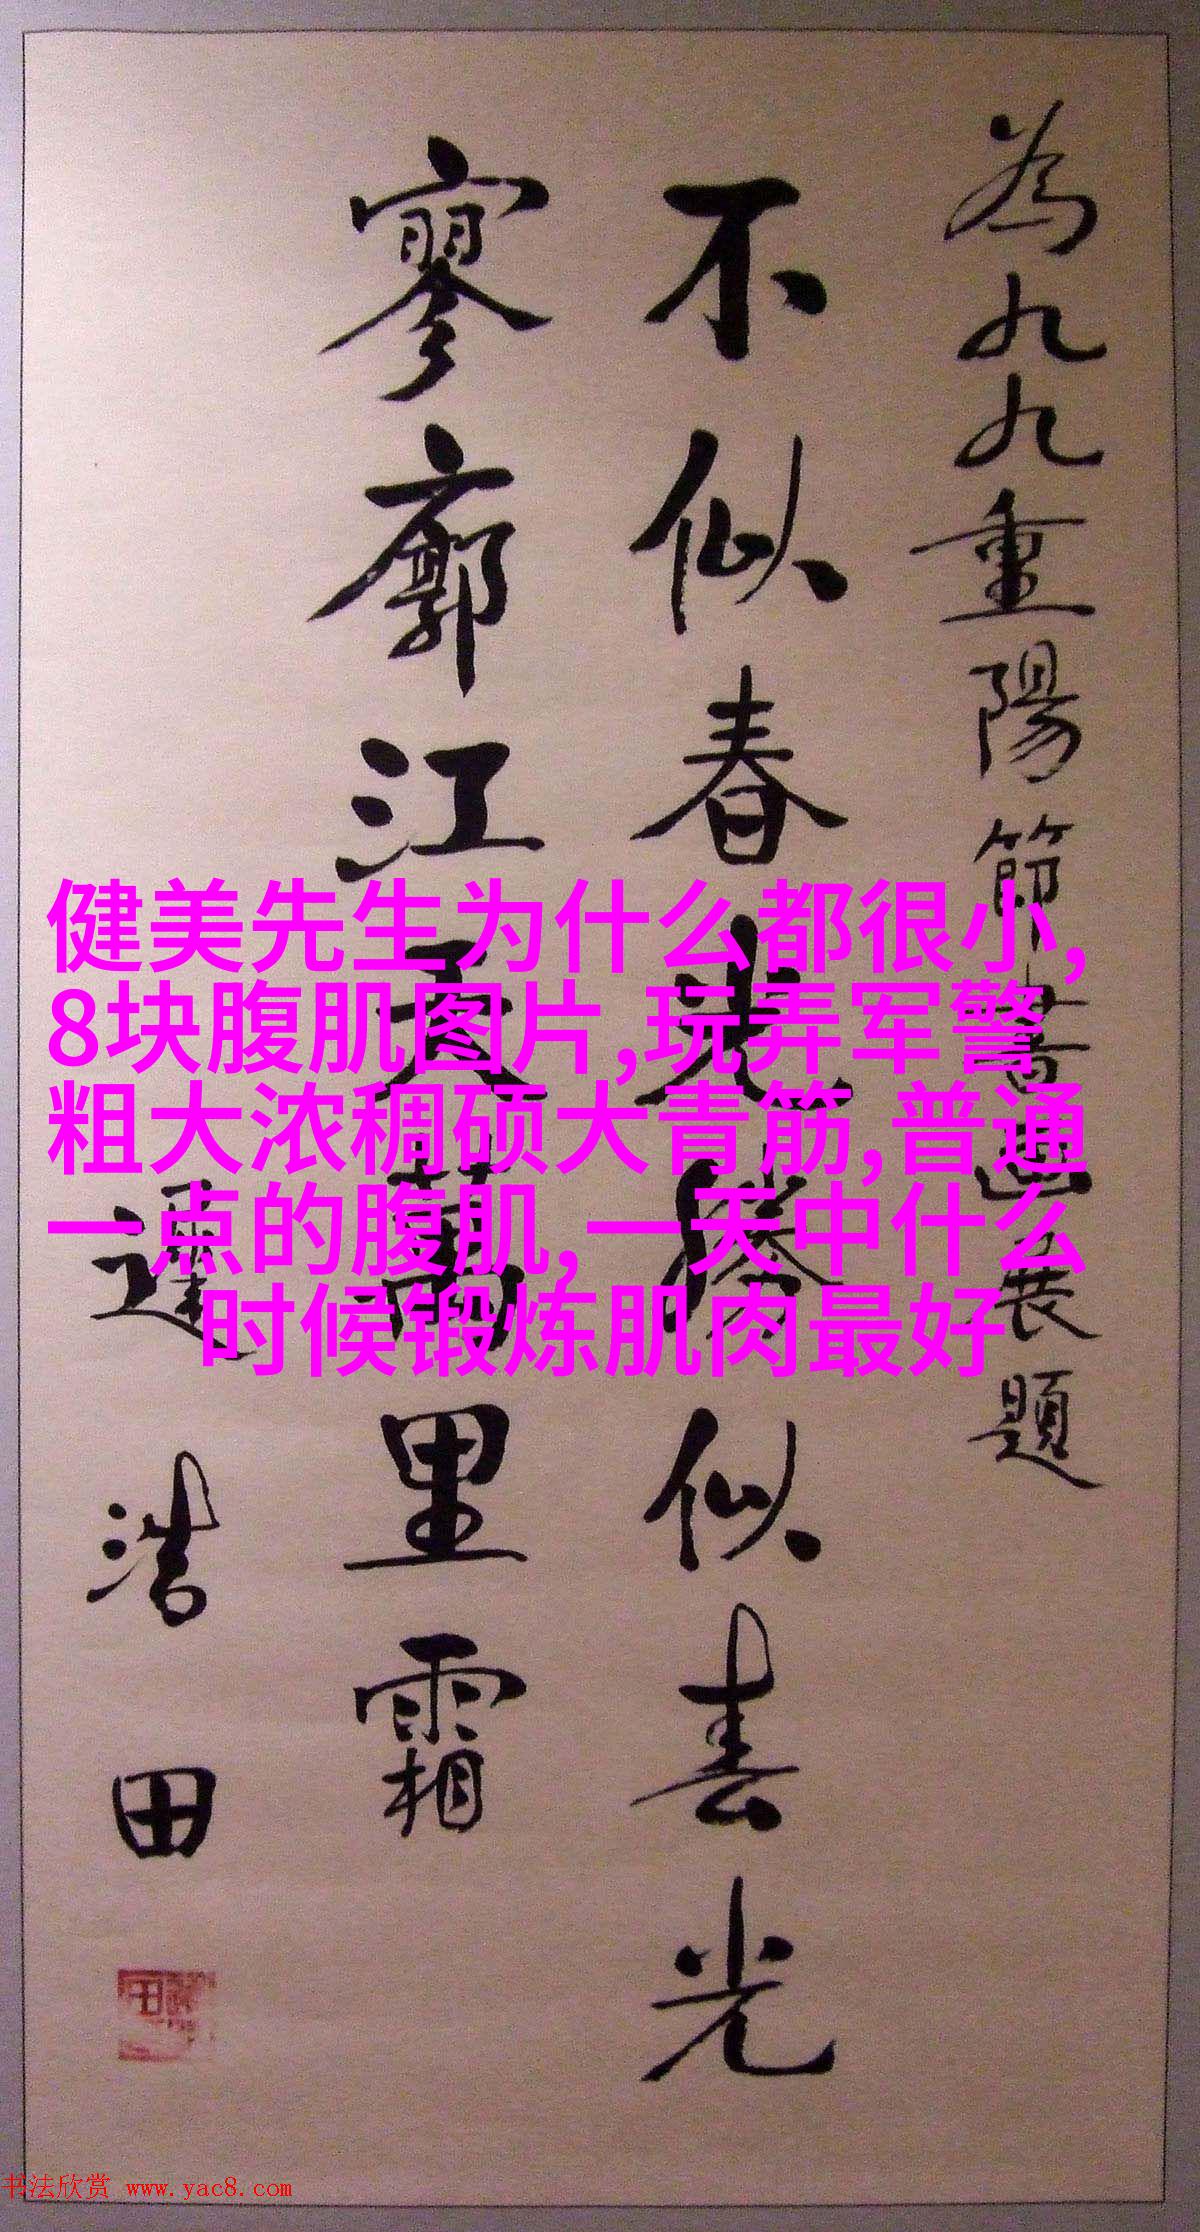 為九九重陽節書畫展題
不似春光勝似春光
寥廓江天萬里霜
遲浩田
健美先生为什么都很小,
8块腹肌图片,玩弄军警
粗大浓稠硕大青筋,普通
一点的腹肌,一天中什么
时候锻炼肌肉最好
书法欣赏 www.yac8.com